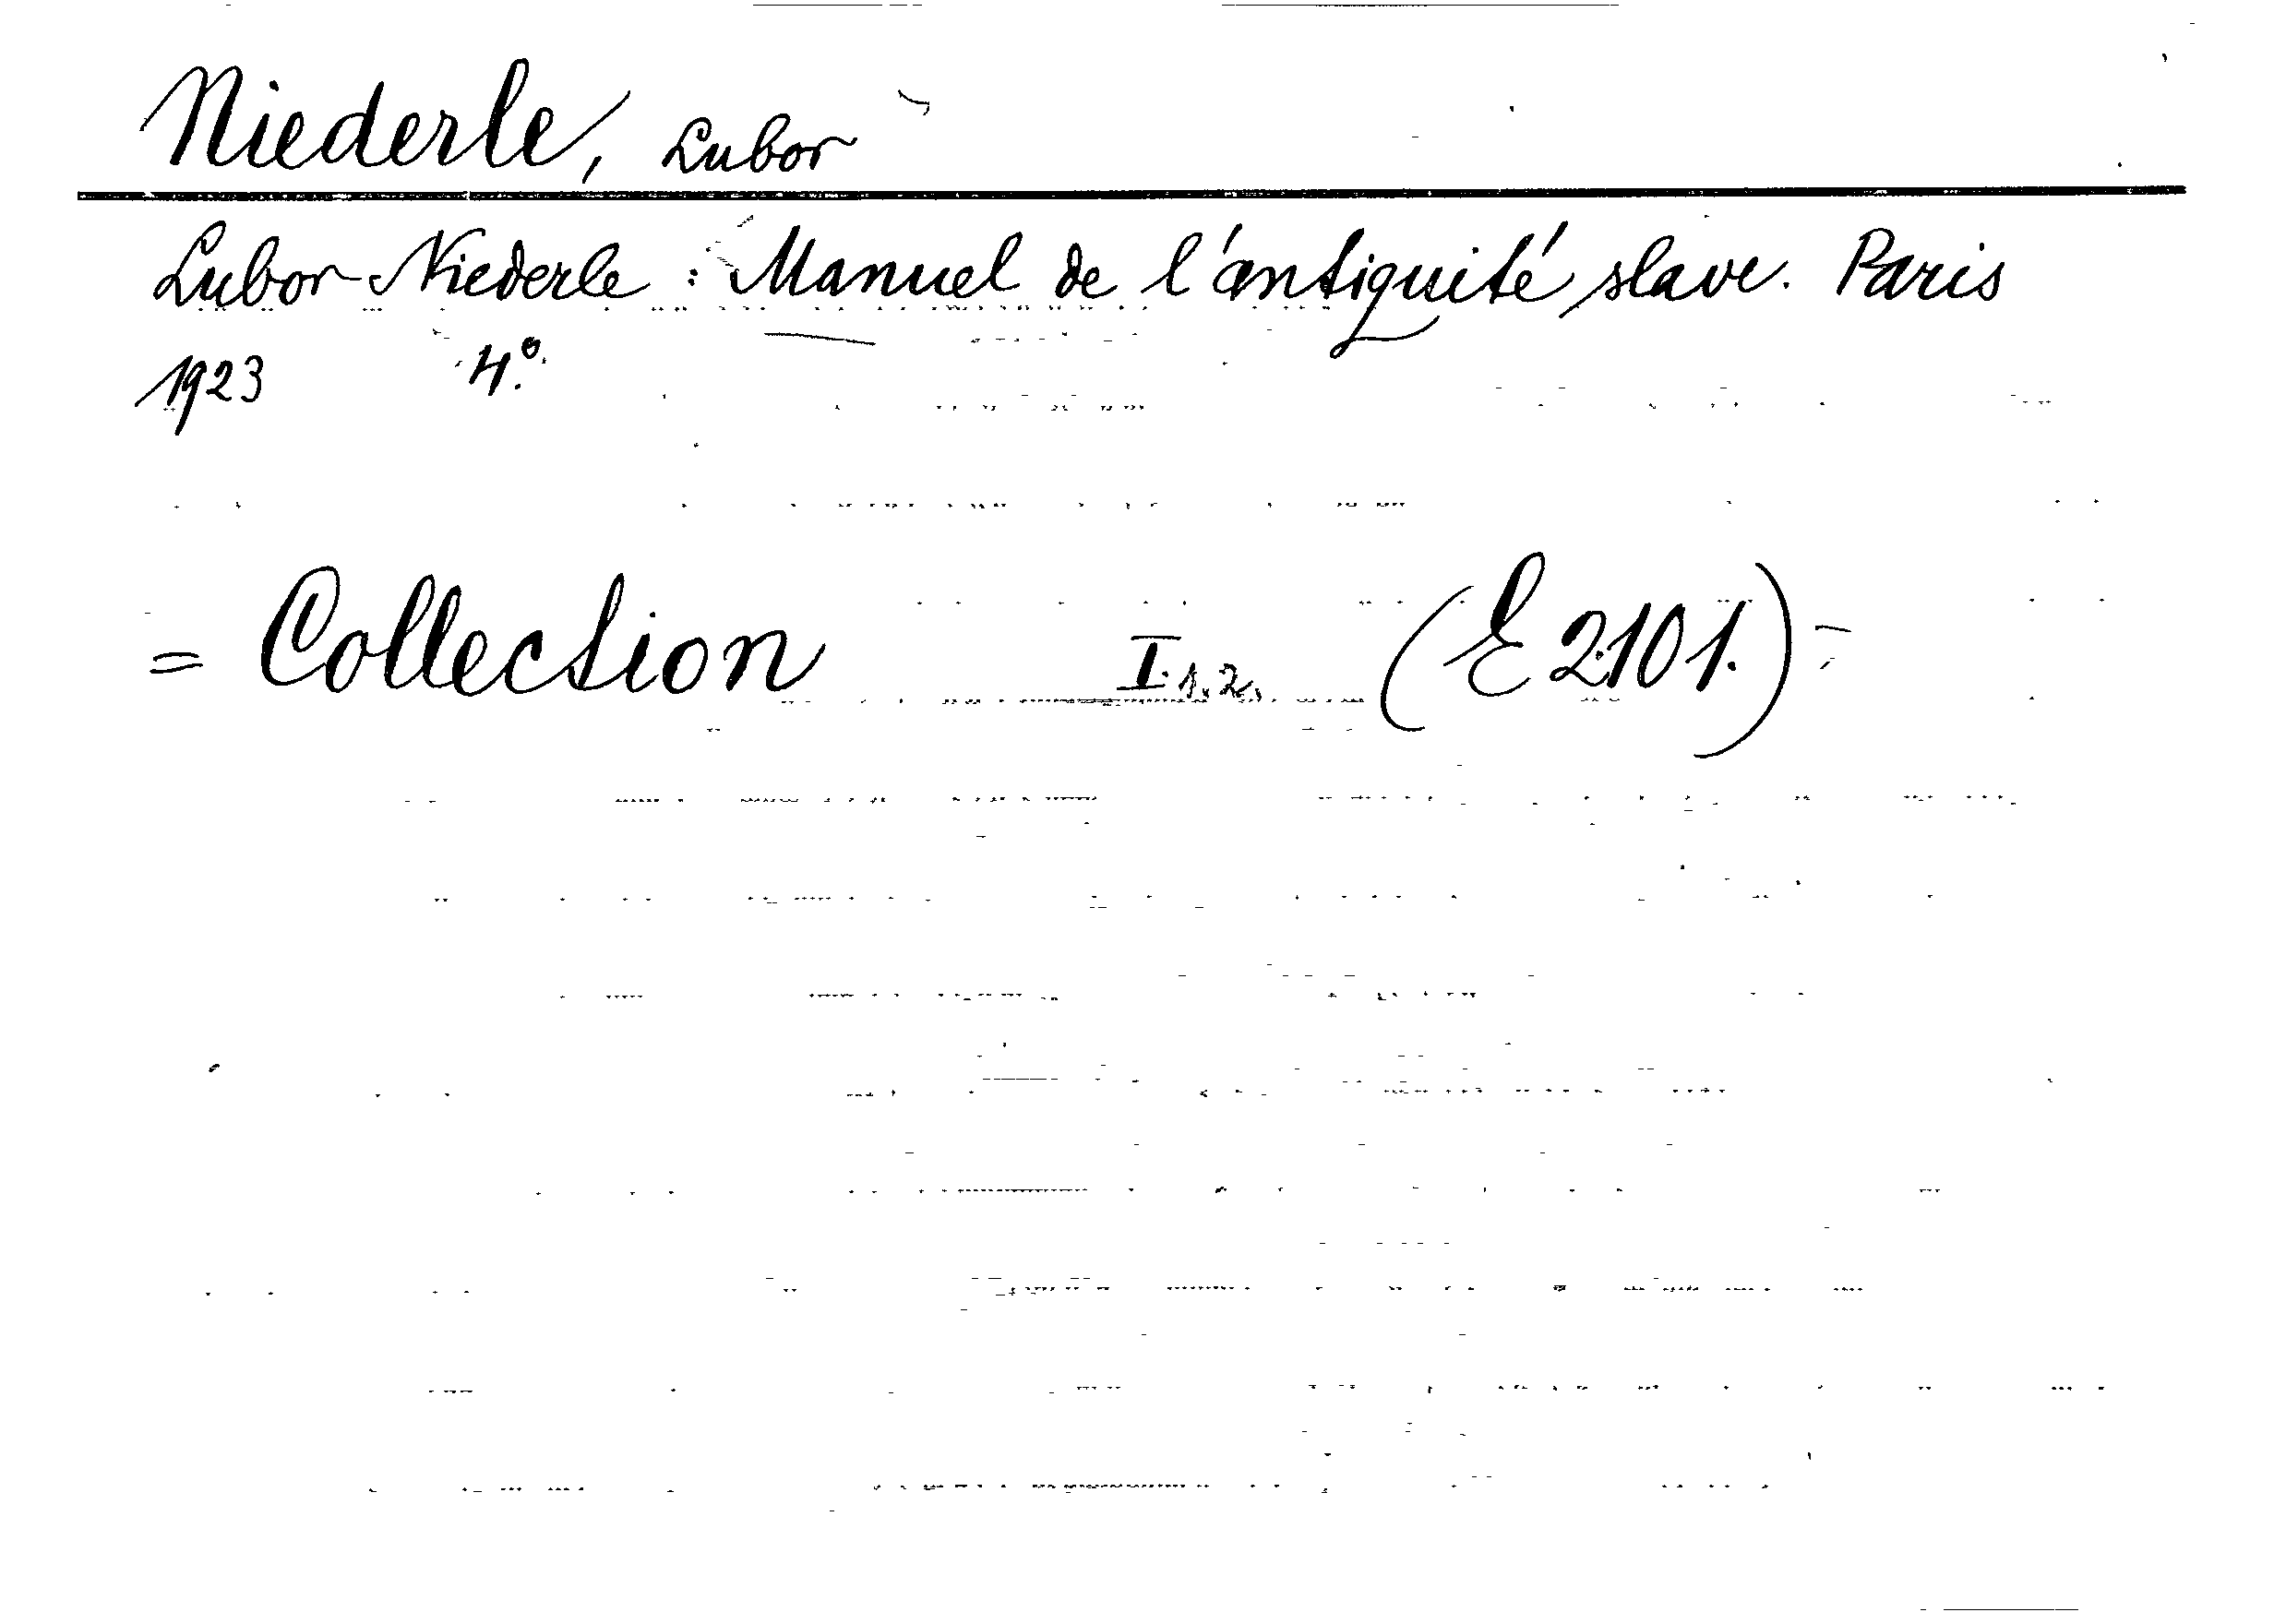 Niederle, Lubor
Lubor Niederle : Manuel de l'antiquité slave. Paris
1923 4.º
= Collection I. 1. 2. (E 2101.) =